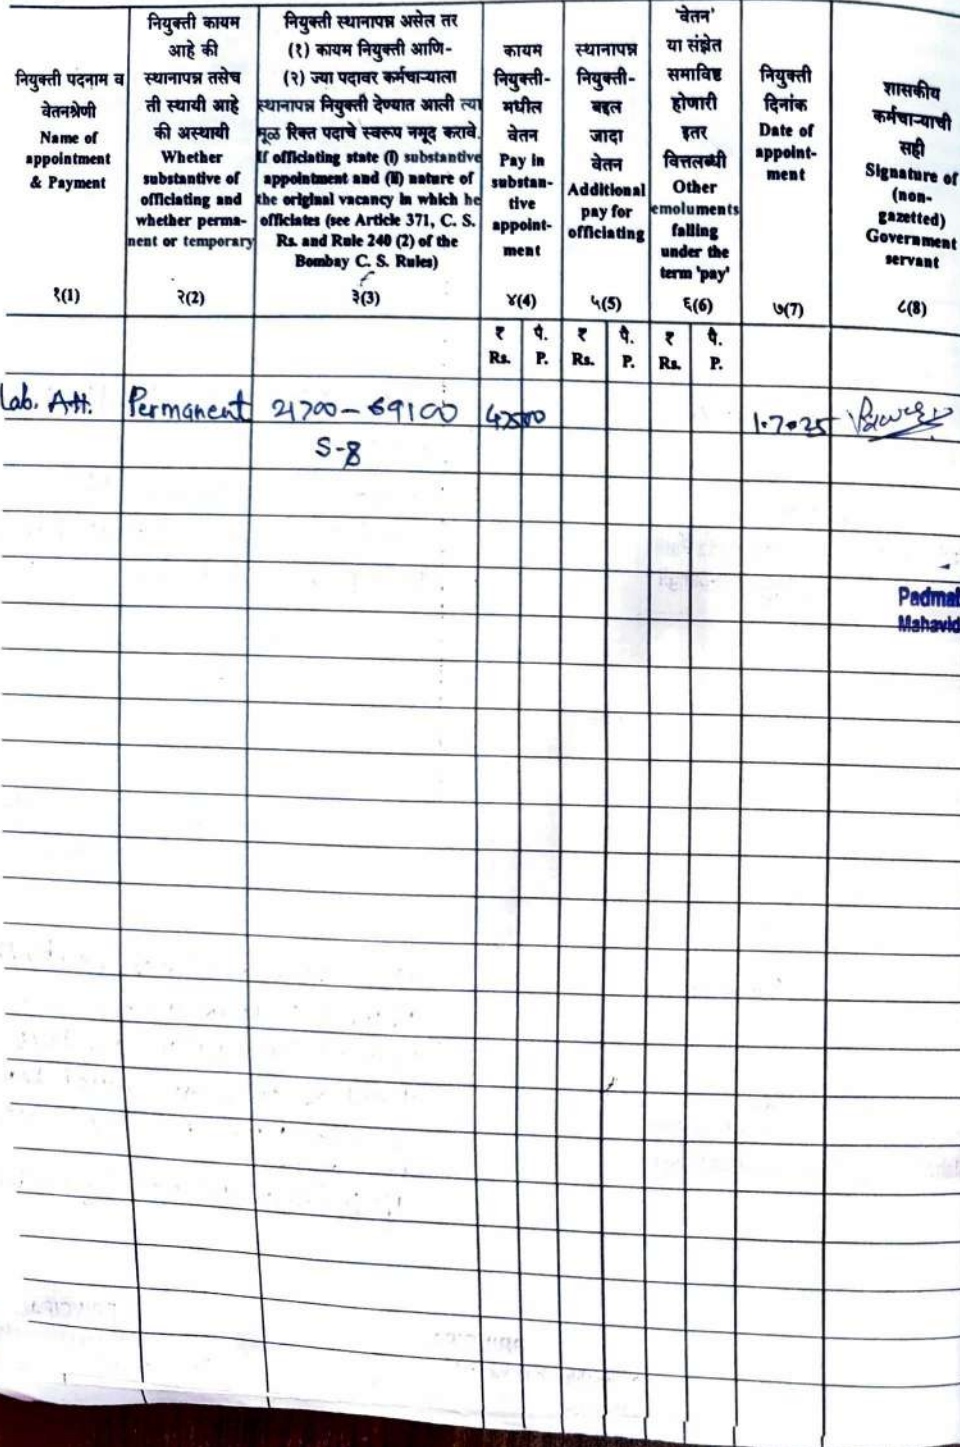 नियुक्ती पदनाम व
वेतनश्रेणी
Name of
appointment
& Payment
१(1)
नियुक्ती कायम
आहे की
स्थानापन्न तसेच
ती स्थायी आहे
की अस्थायी
Whether
substantive of
officiating and
whether perma-
nent or temporary
२(2)
नियुक्ती स्थानापन्न असेल तर
(१) कायम नियुक्ती आणि-
(२) ज्या पदावर कर्मचाऱ्याला
स्थानापन्न नियुक्ती देण्यात आली त्या
मूळ रिक्त पदाचे स्वरूप नमूद करावे.
If officiating state (i) substantive
appointment and (ii) nature of
the original vacancy in which he
officiates (see Article 371, C. S.
Rs. and Rule 240 (2) of the
Bombay C. S. Rules)
३(3)
कायम
नियुक्ती-
मधील
वेतन
Pay in
substan-
tive
appoint-
ment
४(4)
स्थानापन्न
नियुक्ती-
बद्दल
जादा
वेतन
Additional
pay for
officiating
५(5)
'वेतन'
या संज्ञेत
समाविष्ट
होणारी
इतर
वित्तलब्धी
Other
emoluments
falling
under the
term 'pay'
६(6)
नियुक्ती
दिनांक
Date of
appoint-
ment
७(7)
शासकीय
कर्मचाऱ्याची
सही
Signature of
(non-
gazetted)
Government
servant
८(8)
₹ पै. ₹ पै. ₹ पै.
Rs. P. Rs. P. Rs. P.
Lab. Att. Permanent 21700-69100 1.7.25
S-8
Padmab
Mahavid